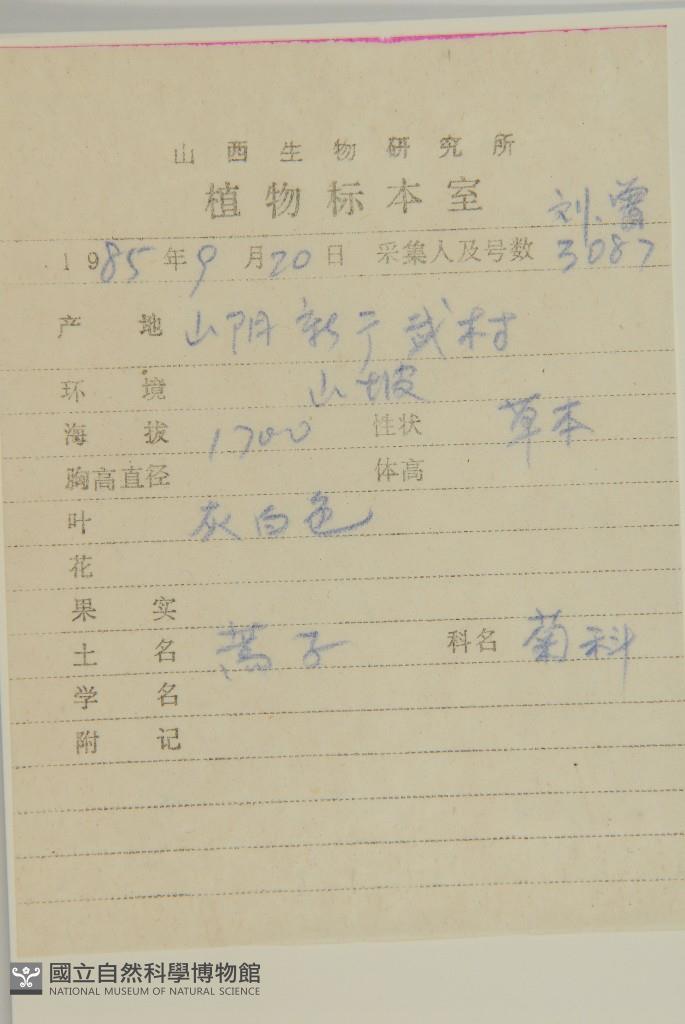 山西生物研究所
植物标本室
刘、曾
1985年9月20日 采集人及号数 3087
产地 山阴新广武村
环境 山坡
海拔 1700 性状 草本
胸高直径 体高
叶 灰白色
花
果实
土名 蒿子 科名 菊科
学名
附记
國立自然科學博物館
NATIONAL MUSEUM OF NATURAL SCIENCE